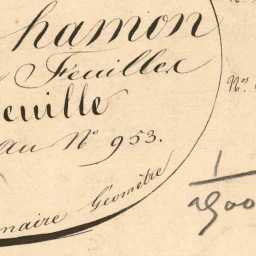 hamon
Feuilles
euille
au N° 953.
N°
naire Géomètre
1
2500